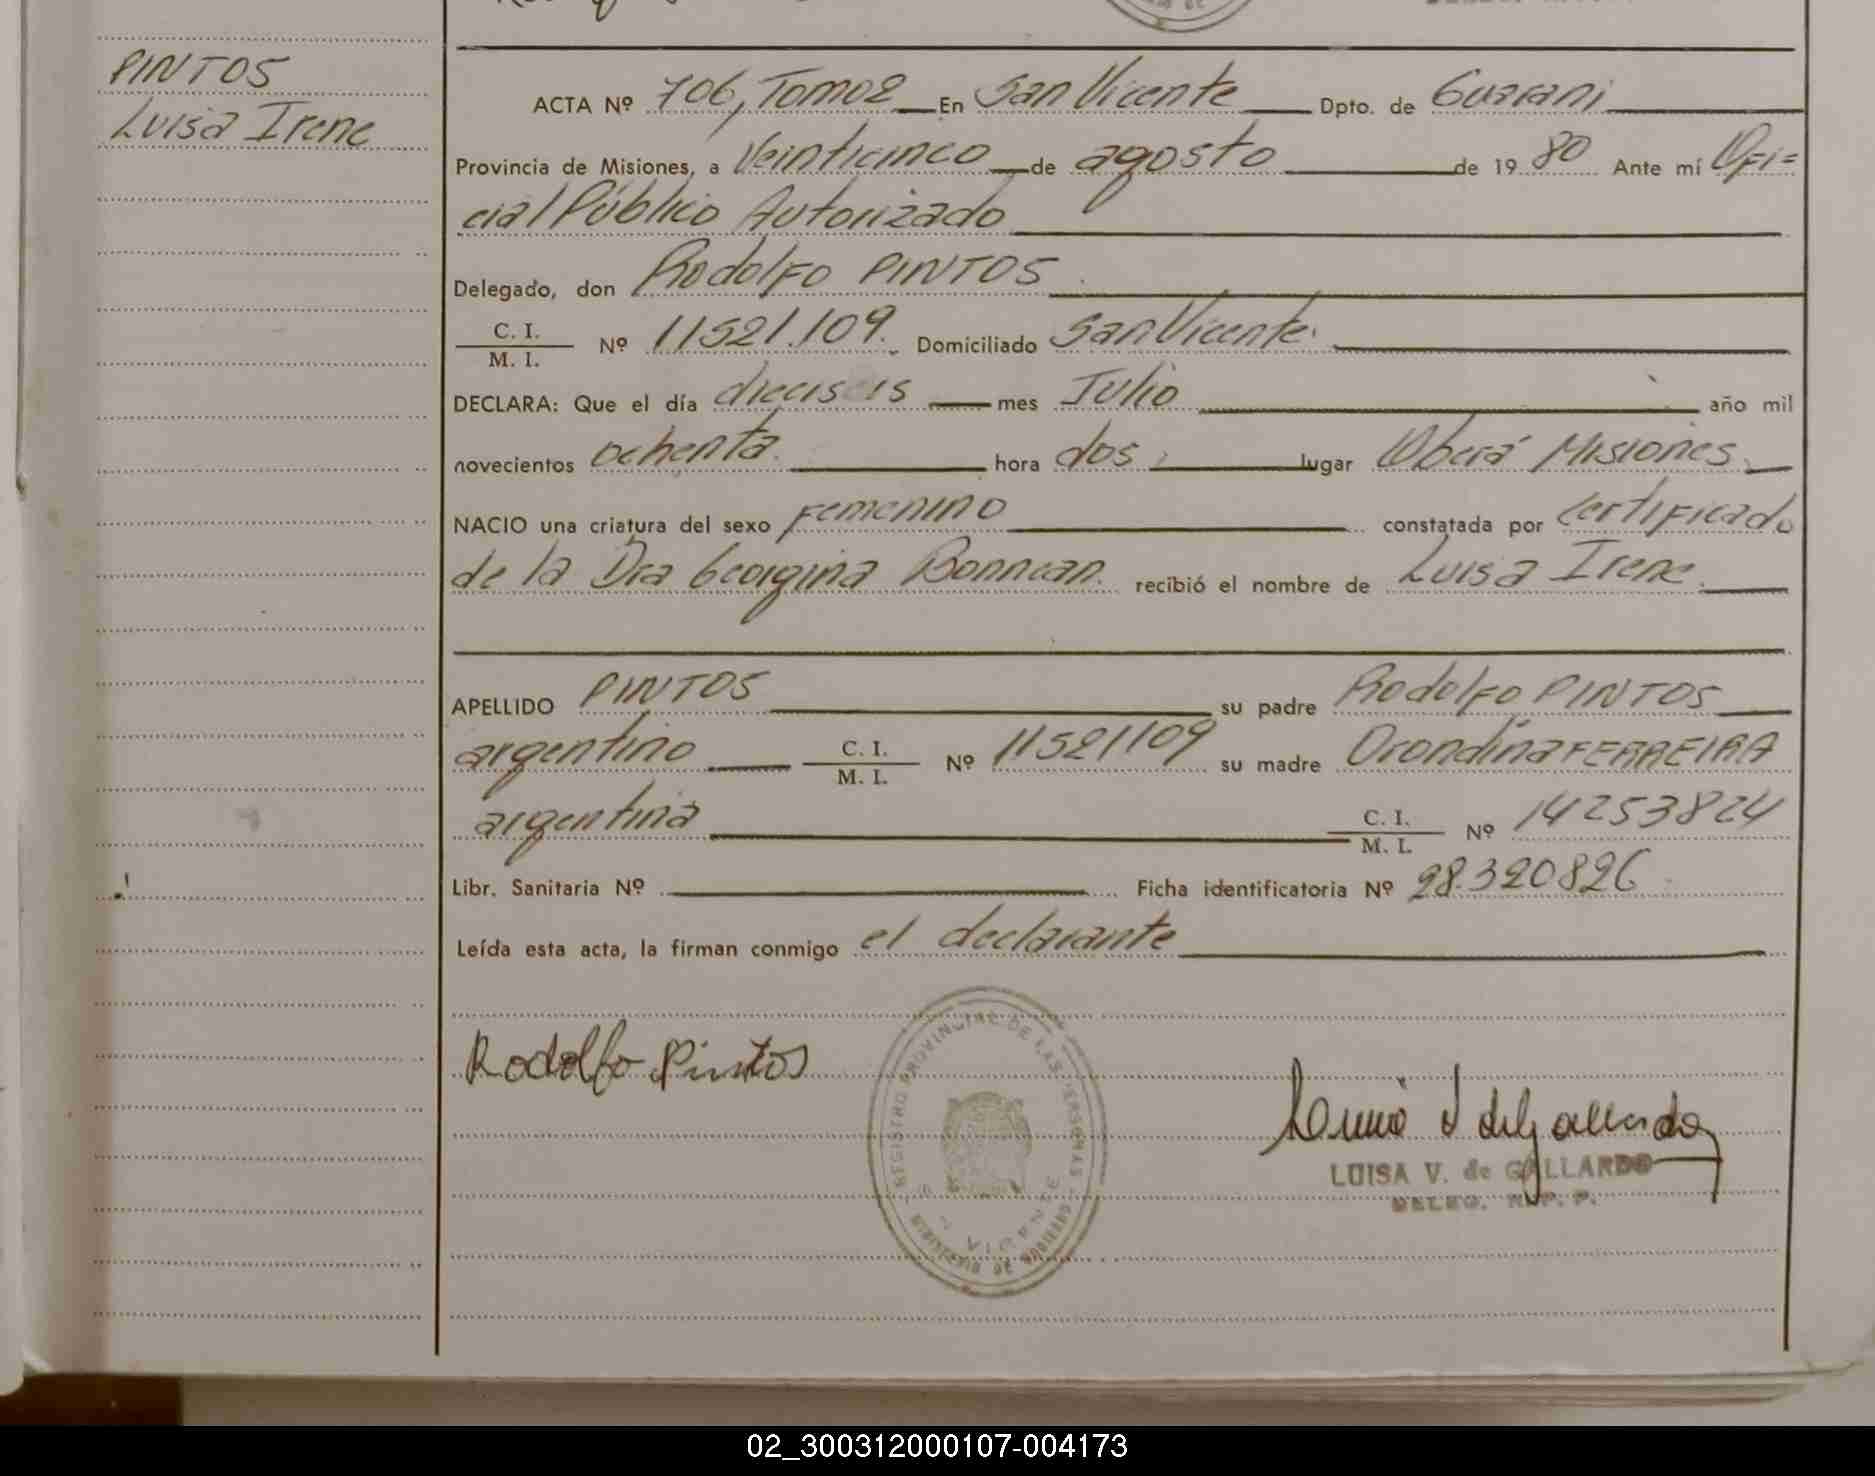 PINTOS
Luisa Irene
ACTA Nº 706, Tomo 2 En San Vicente Dpto. de Guarani
Provincia de Misiones, a Veinticinco de agosto de 19 80 Ante mí Ofi=
cial Público Autorizado
Delegado, don Rodolfo PINTOS
C. I.
M. I. Nº 11521.109. Domiciliado San Vicente.
DECLARA: Que el día dieciseis mes Julio año mil
novecientos ochenta. hora dos, lugar Oberá Misiones.
NACIO una criatura del sexo Femenino constatada por certificado
de la Dra Georgina Bonnean. recibió el nombre de Luisa Irene.
APELLIDO PINTOS su padre Rodolfo PINTOS
argentino C. I.
M. I. Nº 11521109 su madre Orondina FERREIRA
argentina C. I.
M. I. Nº 14253824
Libr. Sanitaria Nº Ficha identificatoria Nº 28.320826
Leída esta acta, la firman conmigo el declarante
Rodolfo Pintos
REGISTRO PROVINCIAL DE LAS PERSONAS
VICENTE
LUISA V. de GALLARDO
DELEG. R. P. P.
02_300312000107-004173